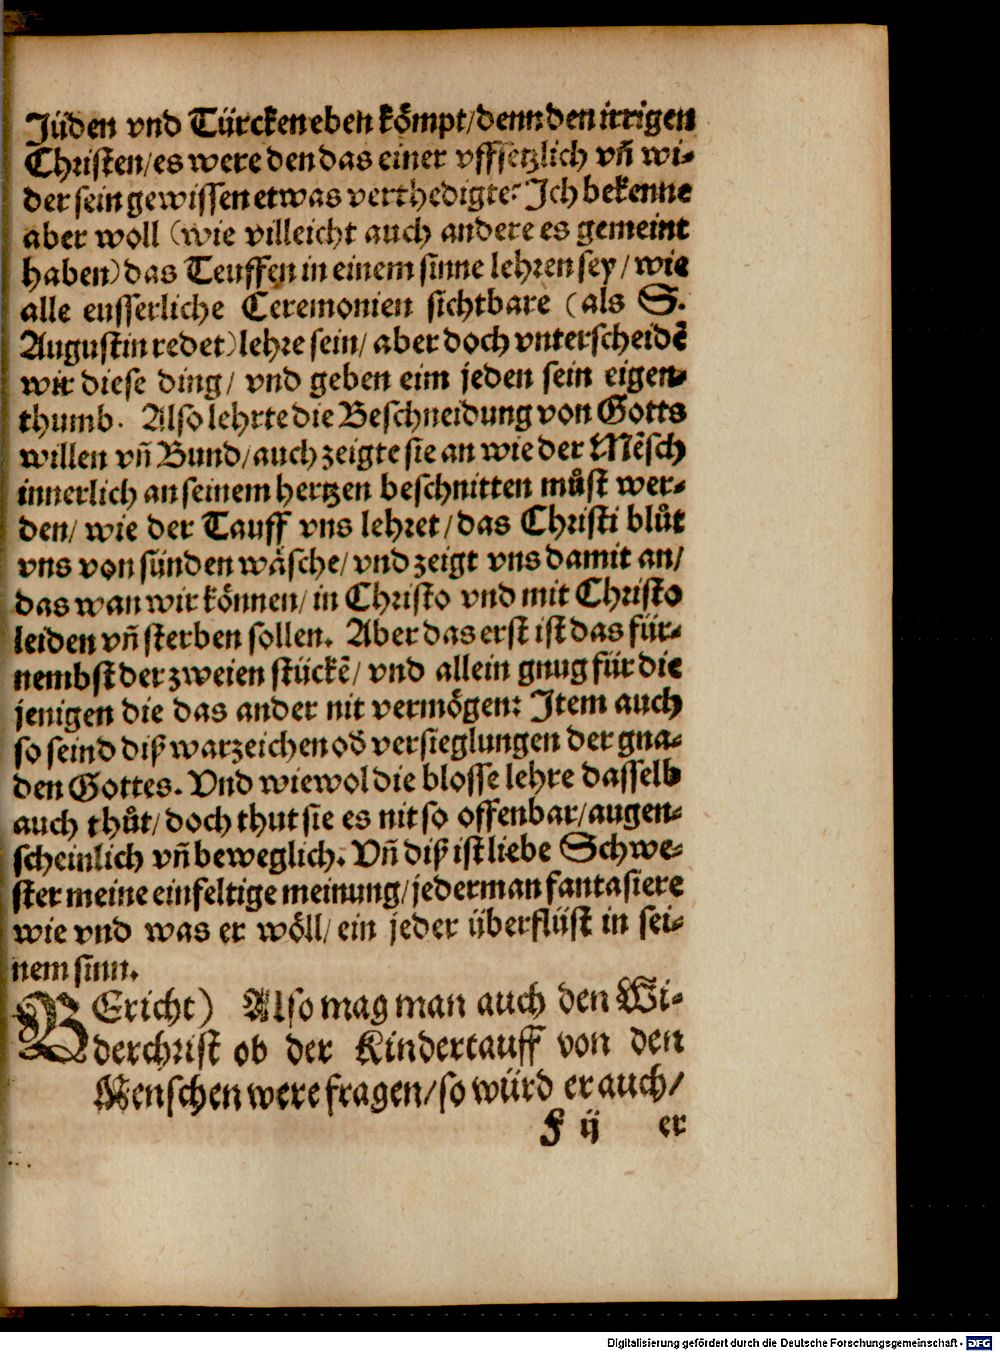 Jüden vnd Türcken eben kömpt/denn den irrigen
Christen/es were den das einer vffsetzlich vñ wi⸗
der sein gewissen etwas verthedigte: Ich bekenne
aber woll (wie villeicht auch andere es gemeint
haben) das Teuffen in einem sinne lehren sey/wie
alle eusserliche Ceremonien sichtbare (als S.
Augustin redet) lehre sein/aber doch vnterscheidẽ
wir diese ding/ vnd geben eim jeden sein eigen⸗
thumb. Also lehrte die Beschneidung von Gotts
willen vñ Bund/auch zeigte sie an wie der Mẽsch
innerlich an seinem hertzen beschnitten můst wer⸗
den/ wie der Tauff vns lehret/das Christi blůt
vns von sünden wäsche/vnd zeigt vns damit an/
das wan wir können/in Christo vnd mit Christo
leiden vñ sterben sollen. Aber das erst ist das für⸗
nembst der zweien stückẽ/ vnd allein gnug für die
jenigen die das ander nit vermögen: Item auch
so seind diß warzeichen oď versieglungen der gna⸗
den Gottes. Vnd wiewol die blosse lehre dasselb
auch thůt/doch thut sie es nit so offenbar/augen⸗
scheinlich vñ beweglich. Vñ diß ist liebe Schwe⸗
ster meine einfeltige meinung/jederman fantasiere
wie vnd was er wöll/ein jeder überflüst in sei⸗
nem sinn.
BEricht) Also mag man auch den Wi⸗
derchrist ob der Kindertauff von den
Menschen were fragen/so würd er auch/
F ij er
Digitalisierung gefördert durch die Deutsche Forschungsgemeinschaft - DFG